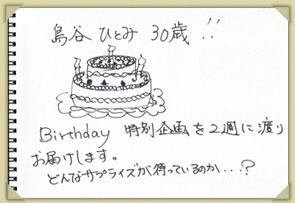 島谷ひとみ 30歳!!
Birthday 特別企画を2週に渡り
お届けします。
どんなサプライズが待っているのか...?